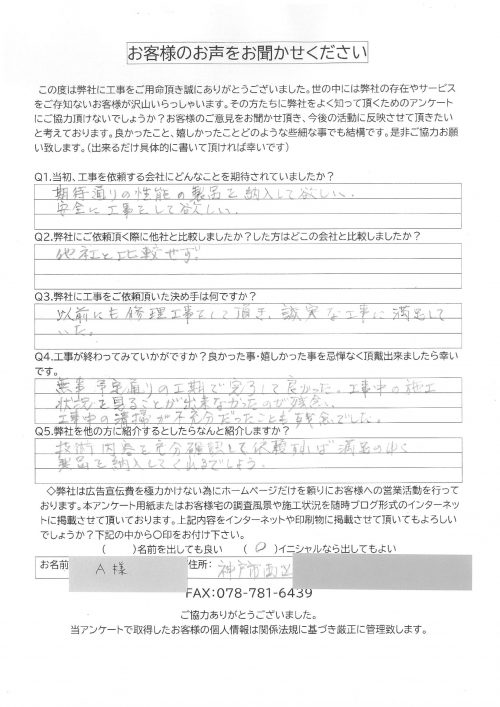 お客様のお声をお聞かせください
この度は弊社に工事をご用命頂き誠にありがとうございました。世の中には弊社の存在やサービス
をご存知ないお客様が沢山いらっしゃいます。その方たちに弊社をよく知って頂くためのアンケート
にご協力頂けないでしょうか？お客様のご意見をお聞かせ頂き、今後の活動に反映させて頂きたい
と考えております。良かったこと、嬉しかったことどのような些細な事でも結構です。是非ご協力お願
い致します。（出来るだけ具体的に書いて頂ければ幸いです）
Q1.当初、工事を依頼する会社にどんなことを期待されていましたか？
期待通りの性能の製品を納入して欲しい、
安全に工事をして欲しい、
Q2.弊社にご依頼頂く際に他社と比較しましたか？した方はどこの会社と比較しましたか？
他社と比較せず
Q3.弊社に工事をご依頼頂いた決め手は何ですか？
以前にも修理工事をして頂き、誠実な工事に満足して
いた。
Q4.工事が終わってみていかがですか？良かった事・嬉しかった事を忌憚なく頂戴出来ましたら幸い
です。
無事予定通りの工期で完了して良かった。工事中の施工
状況を見ることが出来なかったのが残念、
工事中の清掃が不充分だったことも残念でした。
Q5.弊社を他の方に紹介するとしたらなんと紹介しますか？
技術内容を充分確認して依頼すれば満足のゆく
製品を納入してくれるでしょう。
◇弊社は広告宣伝費を極力かけない為にホームページだけを頼りにお客様への営業活動を行って
おります。本アンケート用紙またはお客様宅の調査風景や施工状況を随時ブログ形式のインターネッ
トに掲載させて頂いております。上記内容をインターネットや印刷物に掲載させて頂いてもよろしい
でしょうか？下記の中から〇印をお付け下さい。
（　　）名前を出しても良い　（〇）イニシャルなら出してもよい
お名前　A様　住所：神戸市西区
FAX：078-781-6439
ご協力ありがとうございました。
当アンケートで取得したお客様の個人情報は関係法規に基づき厳正に管理致します。